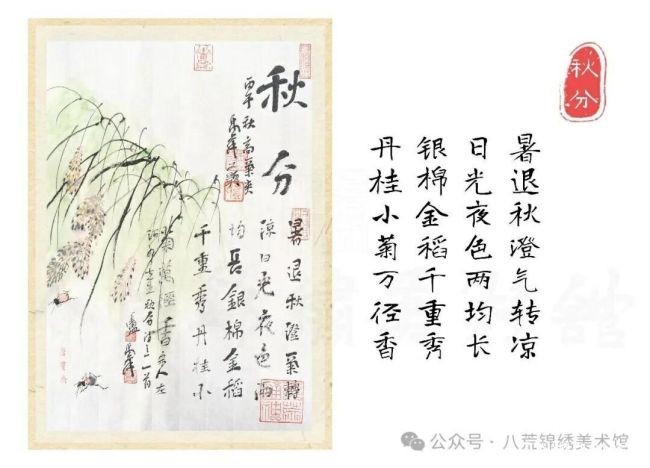 秋分
丙午秋高氣爽
暑退秋澄氣轉
涼日光夜色兩
均長銀棉金稻
千重秀丹桂小
菊萬徑香
秋分
暑退秋澄气转凉
日光夜色两均长
银棉金稻千重秀
丹桂小菊万径香
公众号·八荒锦绣美术馆